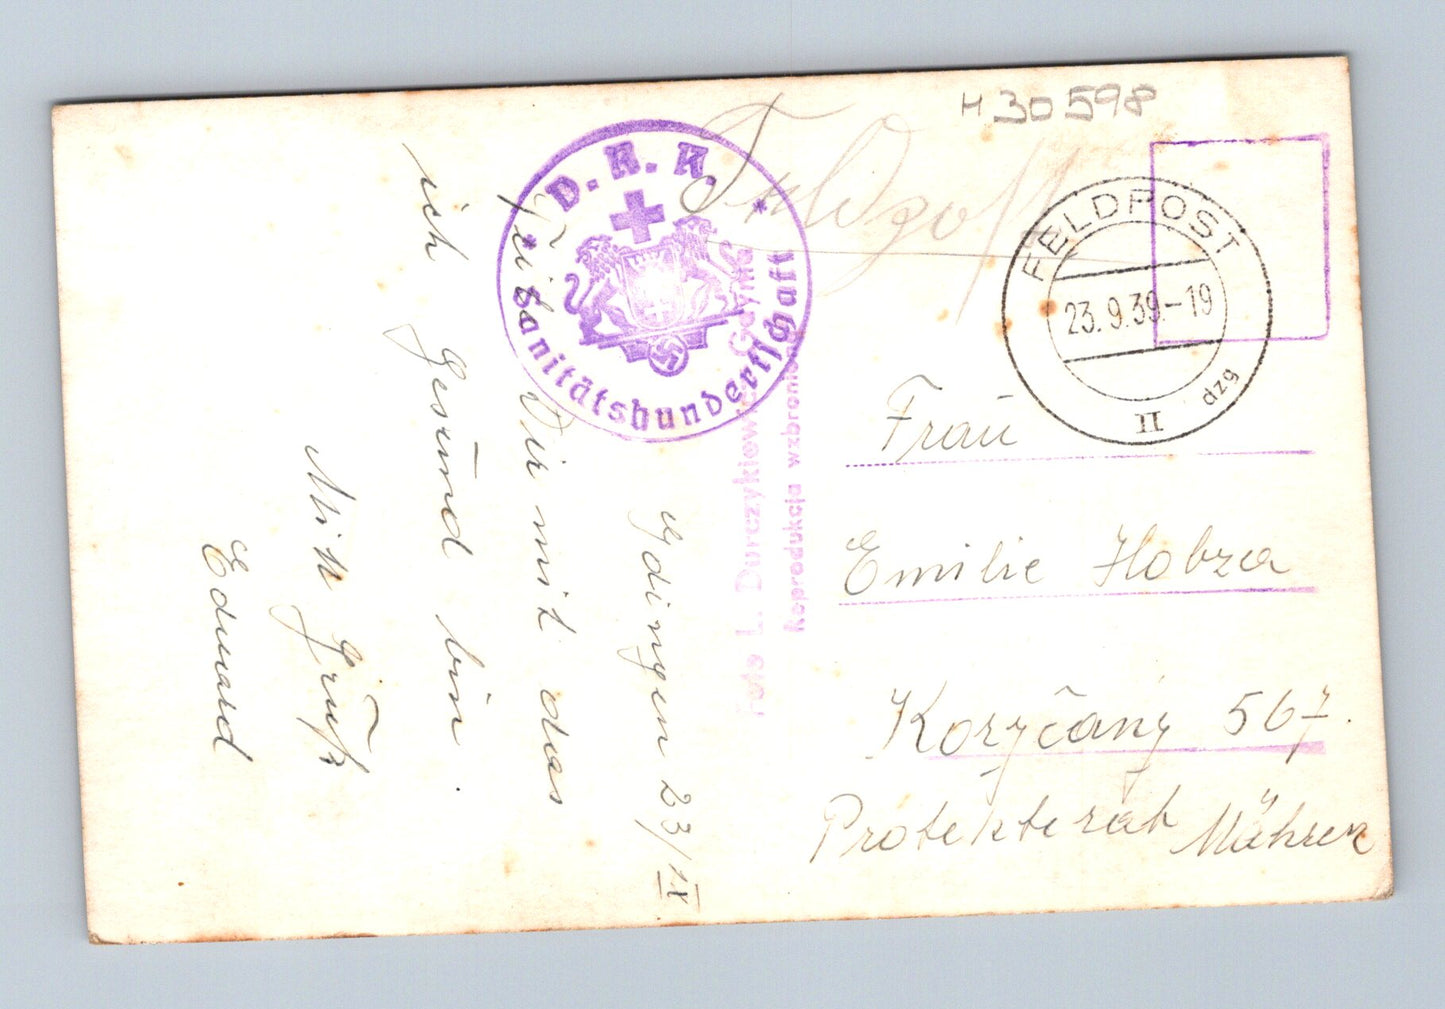 H 30 598
Feldpost
FELDPOST
23.9.39.-19
II
dzg
D. R. K. *
Sanitätshundertschaft
Foto L. Durczykiewicz Gdynia
Reprodukcja wzbroniona
Gdingen 23/IX
Teile Dir mit das
ich gesund bin.
Mit Gruß
Eduard
Frau
Emilie Hobza
Koryčany 567.
Protekterat Mähren